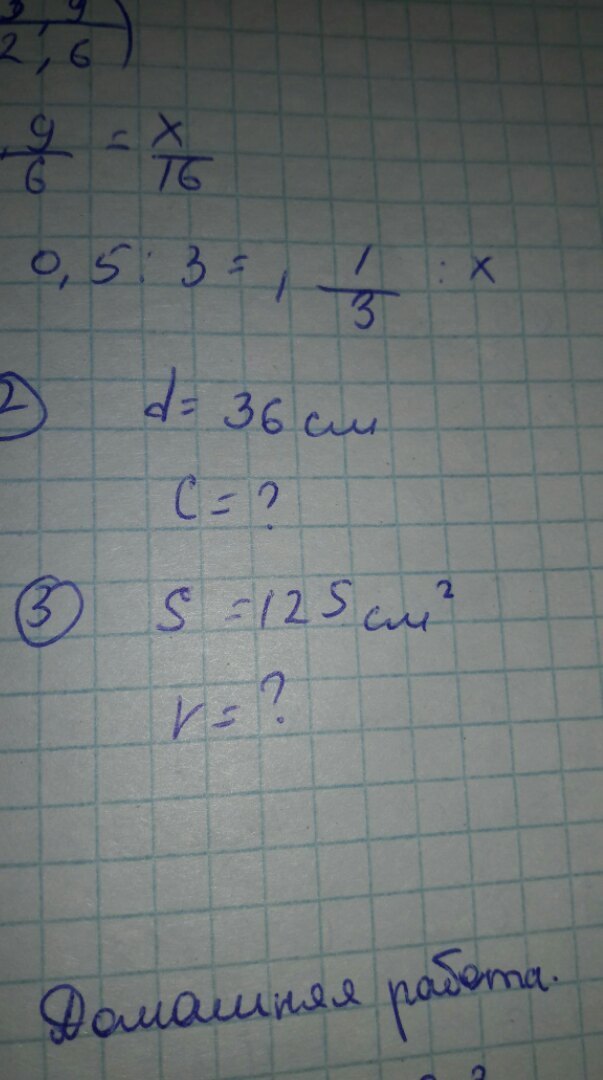 2,6)
9/6 = x/16
0,5 : 3 = 1 1/3 : x
2 d = 36 см
C = ?
3 S = 125 см²
r = ?
Домашняя работа.